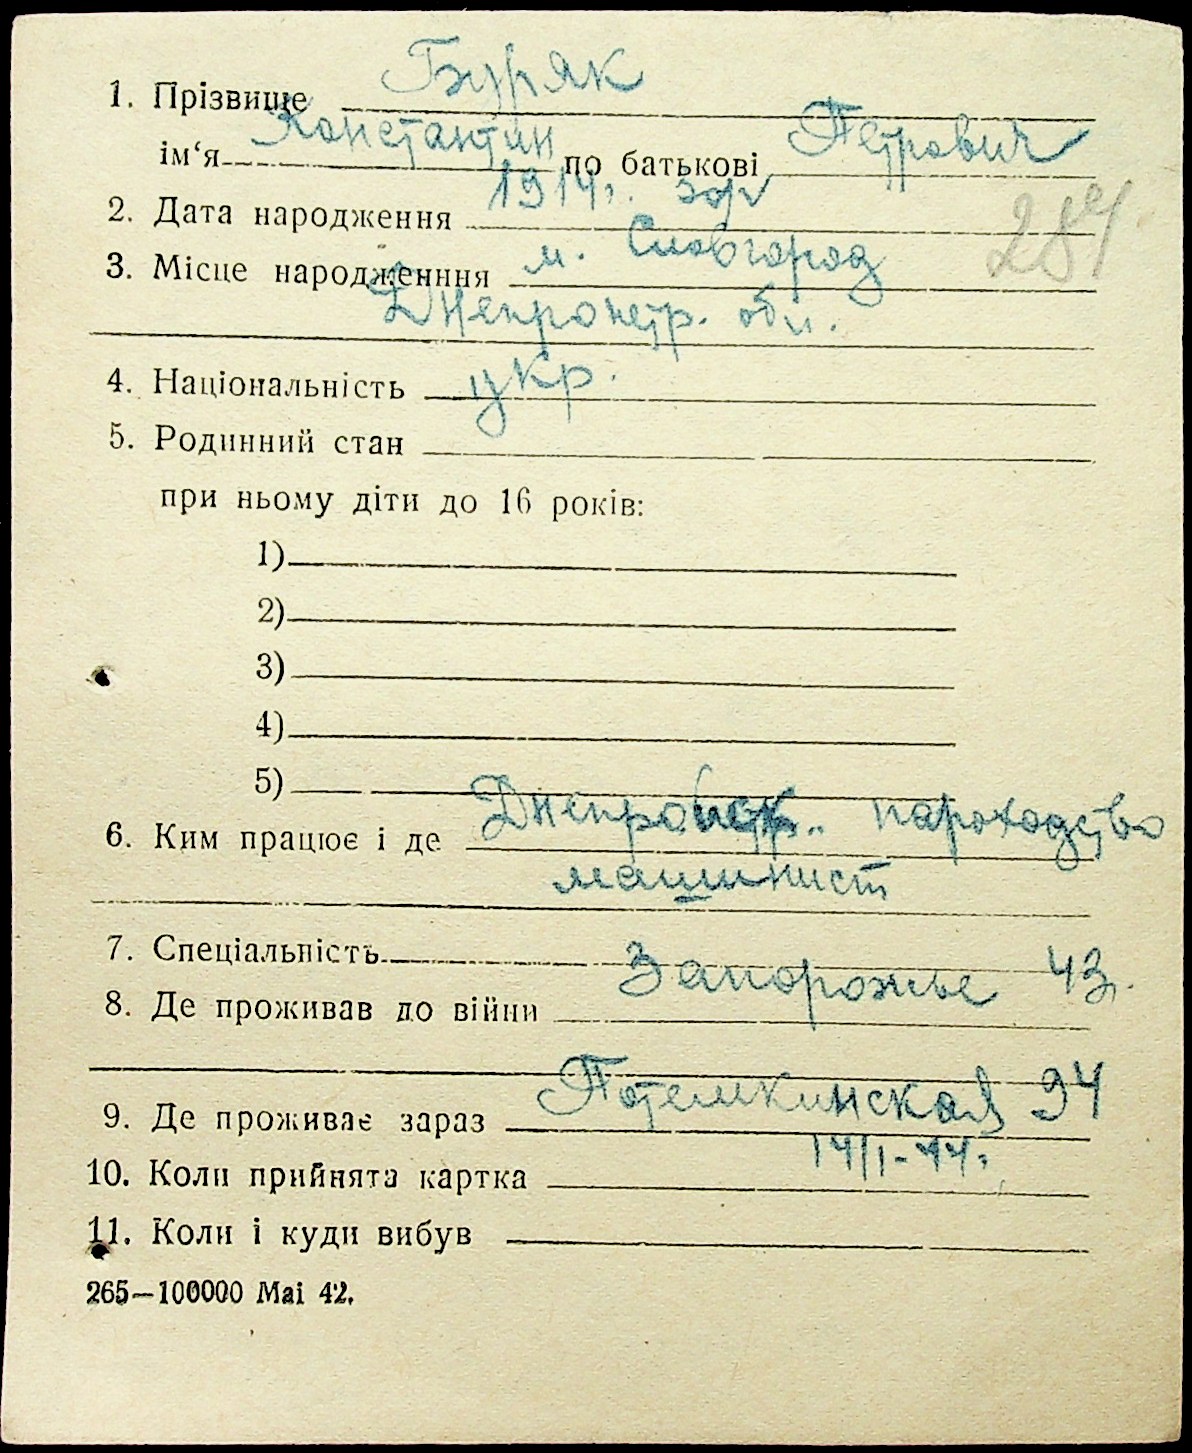 1. Прізвище Буряк
ім‘я Константин по батькові Петрович
2. Дата народження 1914г.
287
3. Місце народженння м. Славгород
Днепропетр. обл.
4. Національність укр.
5. Родинний стан
при ньому діти до 16 років:
1)
2)
3)
4)
5)
6. Ким працює і де пароходство
машинист
7. Спеціальність
8. Де проживав до війни Запорожье 43
9. Де проживає зараз Потемкинская 94
10. Коли прийнята картка 14/I-44.
11. Коли і куди вибув
265—100000 Mai 42.